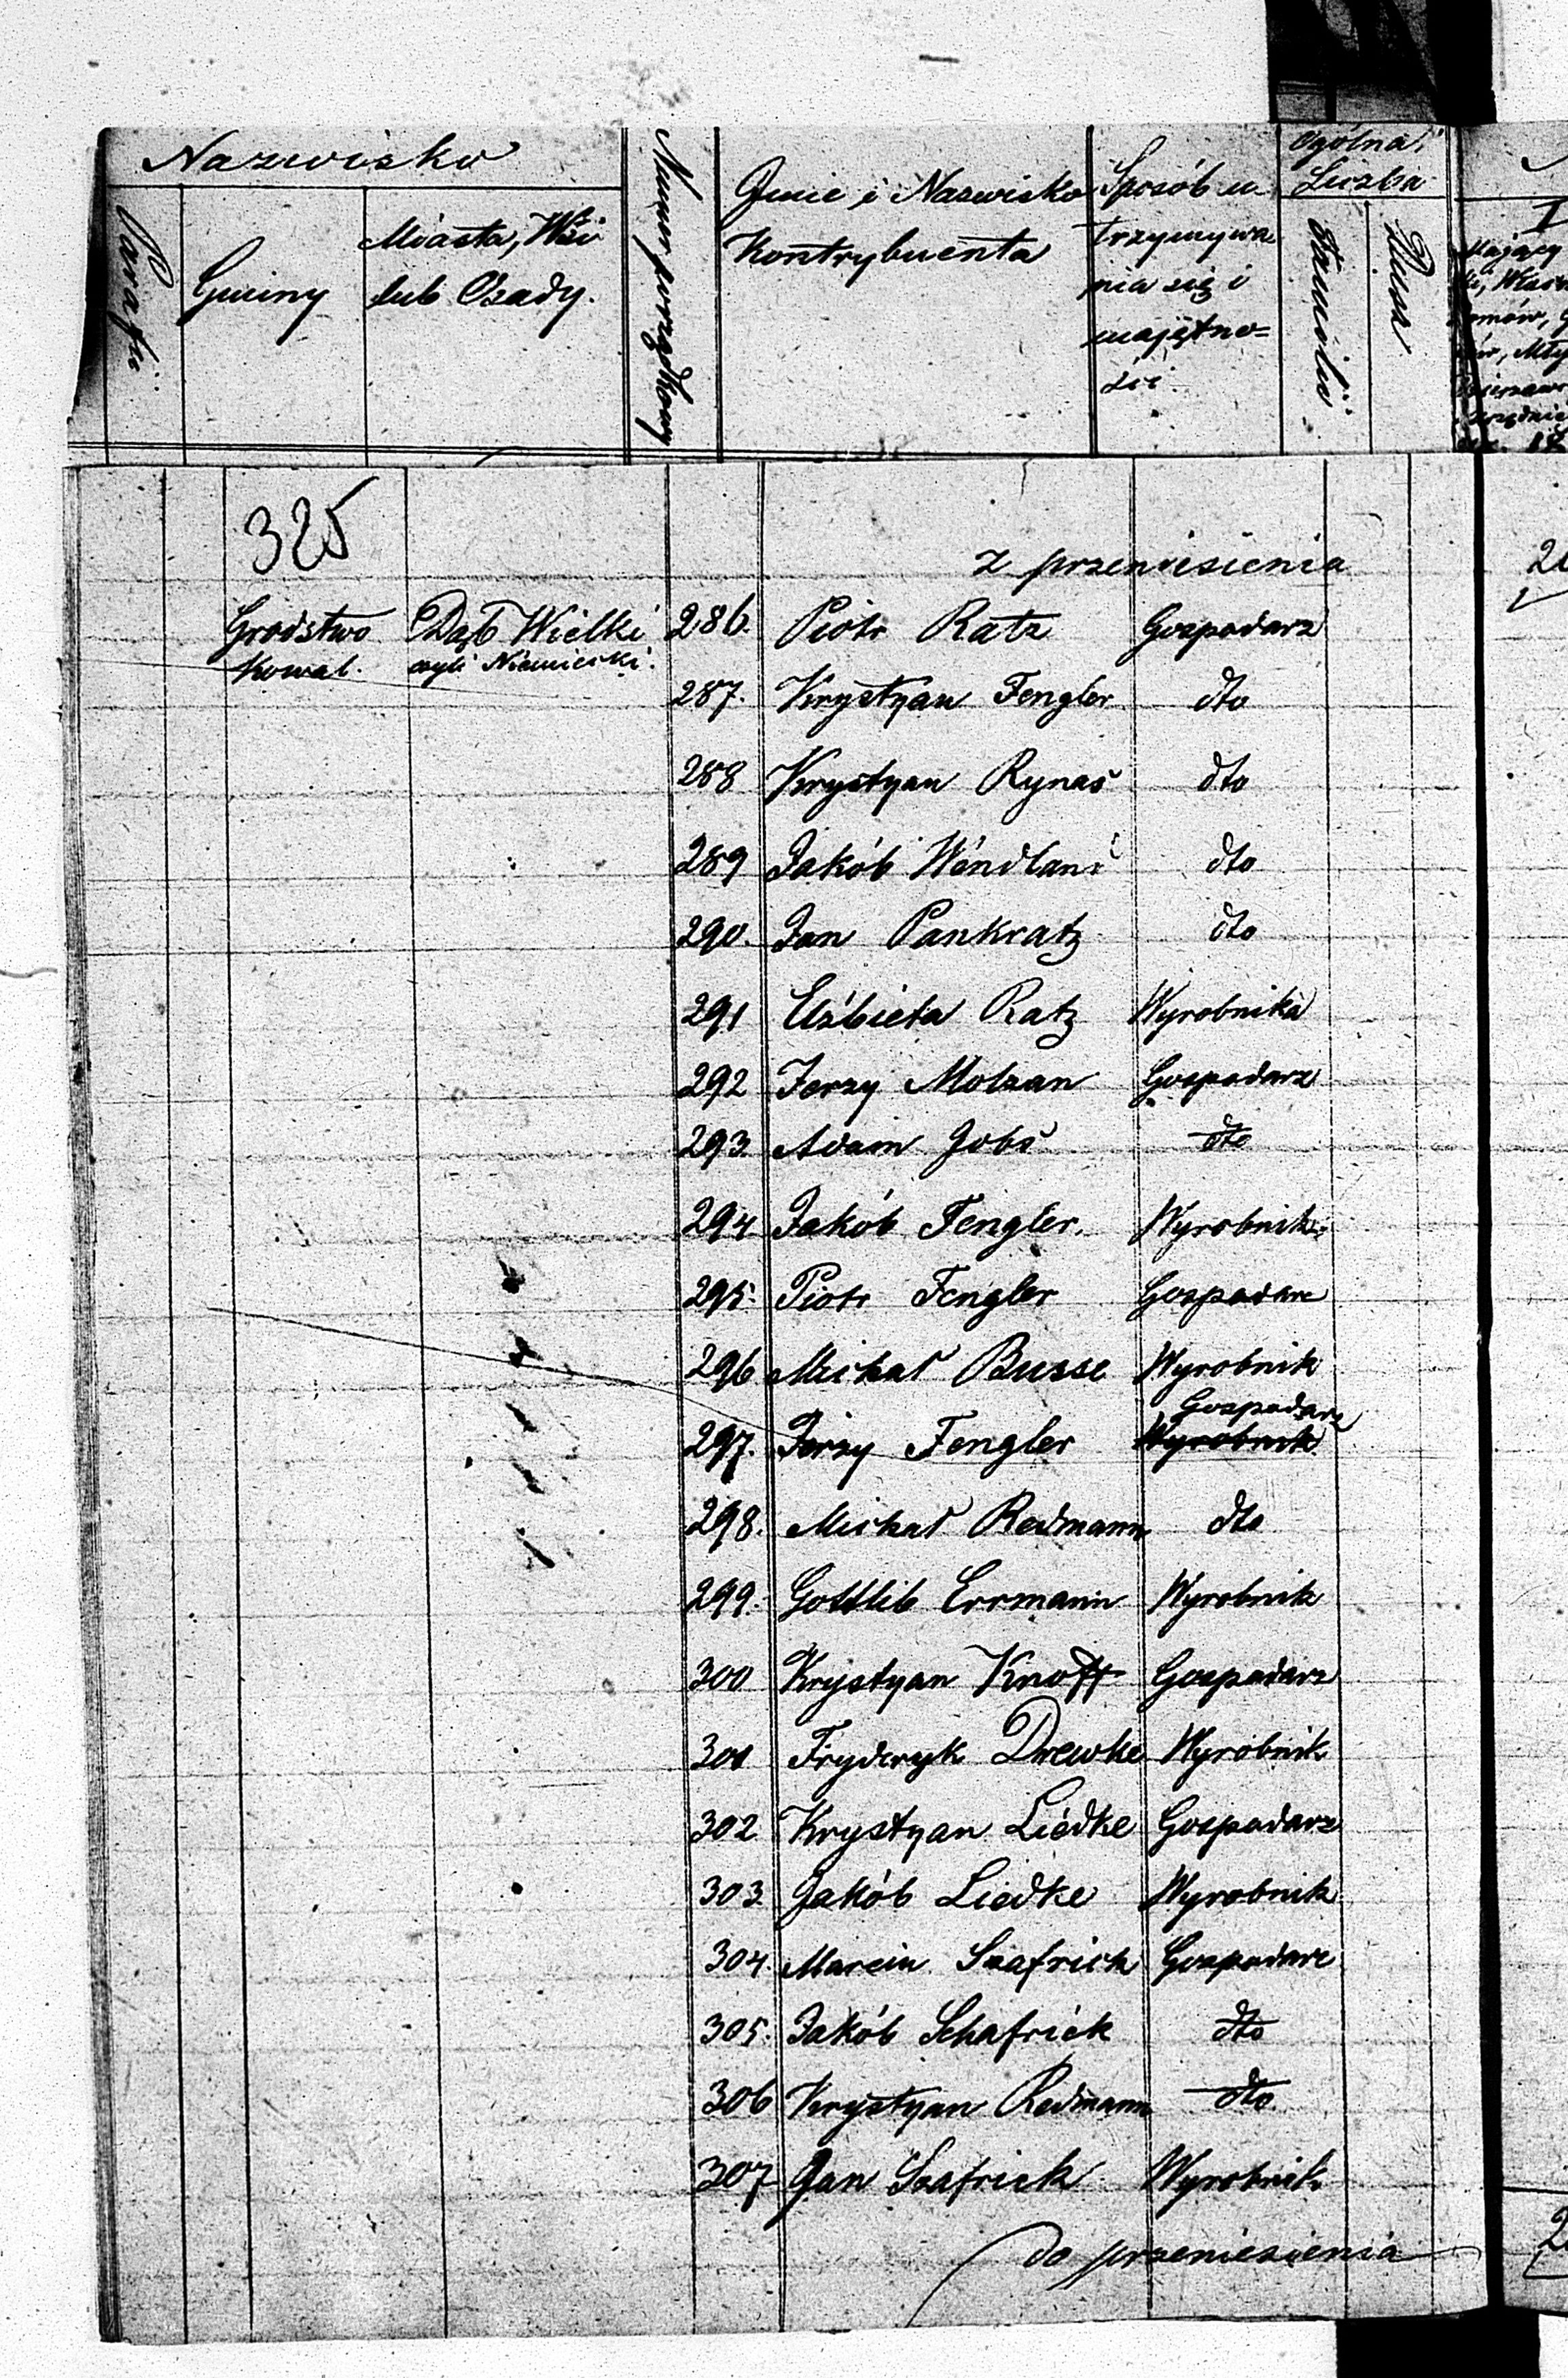 Nazwisko
Parafii
Gminy
Miasta, Wsi
lub Osady.
Numer porządkowy
Imie i Nazwisko
Kontrybuenta
Sposób u-
trzymywa
nia się i
majętno=
ści
Ogólna
Liczba
Familii
Dusz
325
z przeniesienia
Grodstwo Dąb Wielki 286. Piotr Ratz Gospodarz
Kowal. czyli Niemiecki.
287. Krystyan Fengler dto
288 Krystyan Rynas dto
289 Jakób Wendland dto
290. Jan Pankratz dto
291 Elżbieta Ratz Wyrobnika
292 Jerzy Molzan Gospodarz
293. Adam Jobs dto
294 Jakób Fengler. Wyrobnik
295. Piotr Fengler Gospodarz
296 Michał Busse Wyrobnik
Gospodarz
297. Jerzy Fengler Wyrobnik
298. Michał Redmann dto
299. Gottlib Errmann Wyrobnik
300 Krystyan Knoff Gospodarz
301 Fryderyk Drewke Wyrobnik
302 Krystyan Liedke Gospodarz
303 Jakób Liedke Wyrobnik
304. Marcin Szafrick Gospodarz
305. Jakób Schafrick dto
306 Krystyan Redmann dto
307 Jan Szafrick Wyrobnik
do przeniesienia